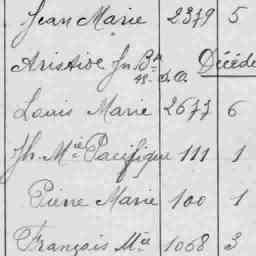 Jean Marie 2379 5
Aristide Jn Bte Décédé
Louis Marie 2677 6
Jh. Mie Pacifique 111 1
Pierre Marie 100 1
François Mie 1068 3